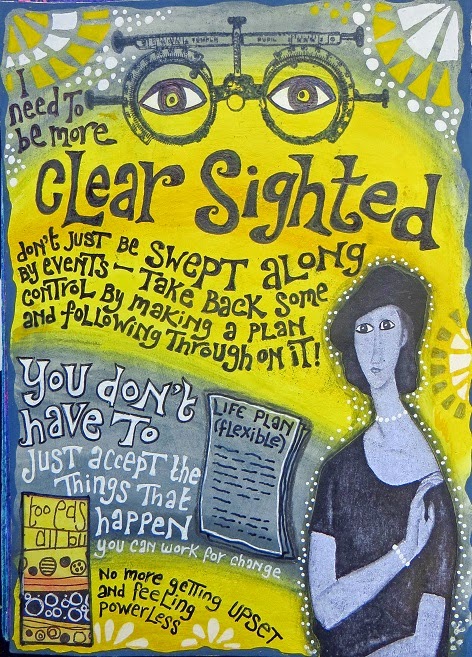 I
need to
be more
clear sighted
don't just be swept along
by events – take back some
control by making a plan
and following through on it!
You don't
have to
just accept the
things that
happen
you can work for change
Life Plan
(flexible)
No more getting upset
and feeling
powerless